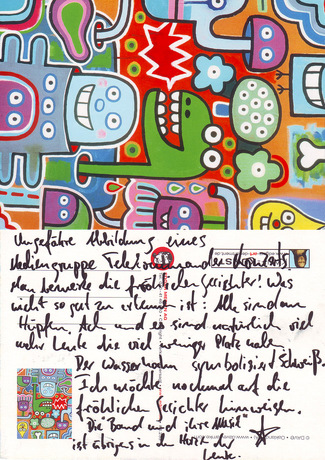 Ungefähre Abbildung eines
Mediengruppe Telekommander Konzerts
Man bemerke die fröhlichen Gesichter! Was
nicht so gut zu erkennen ist: Alle sind am
Hüpfen. Ach und es sind natürlich viel
mehr Leute die viel weniger Platz haben
Der Wasserhahn symbolisiert Schweiß.
Ich möchte nochmal auf die
fröhlichen Gesichter hinweisen.
"Die Band und ihre Musik"
ist übrigens in den Herzen der
Leute.